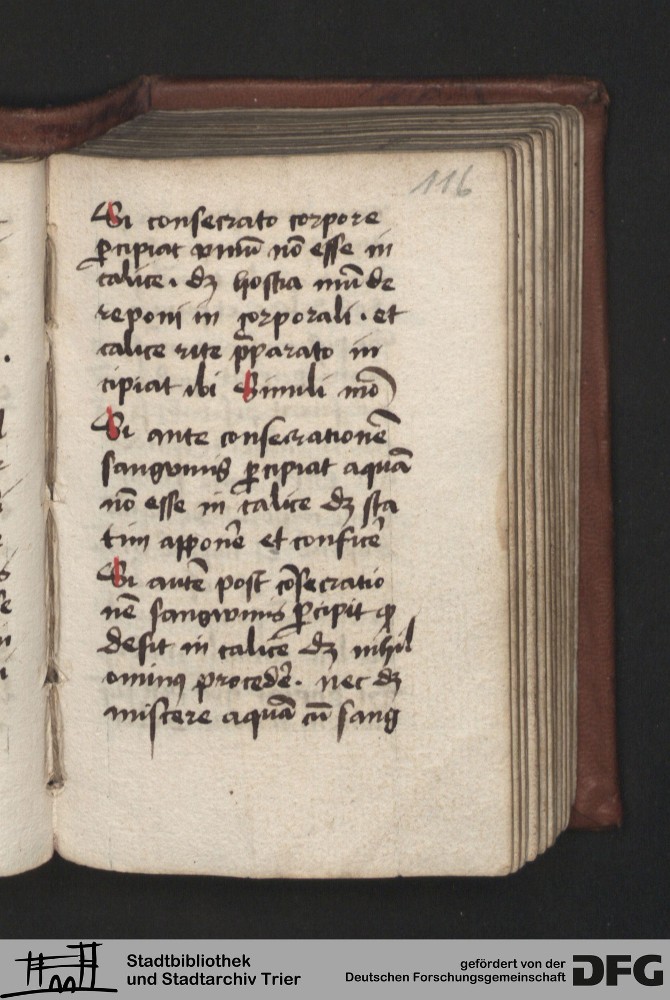 116
Si consecrato corpore
ꝑcipiat vinū nō esse in
calice. dꝫ hostia mūde
reponi in corporali. et
calice rite p̄parato in
cipiat ibi Simili mō
Si ante consecrationē
sangwinis ꝑcipiat aquā
nō esse in calice dꝫ sta
tim apponē et conficē
Si autē post cōsecratio
nē sangwinis ꝑcipit ꝙ
defit in calice dꝫ nihil
ominꝯ procedē. nec dꝫ
miscere aquā cū sang
Stadtbibliothek
und Stadtarchiv Trier
gefördert von der
Deutschen Forschungsgemeinschaft
DFG